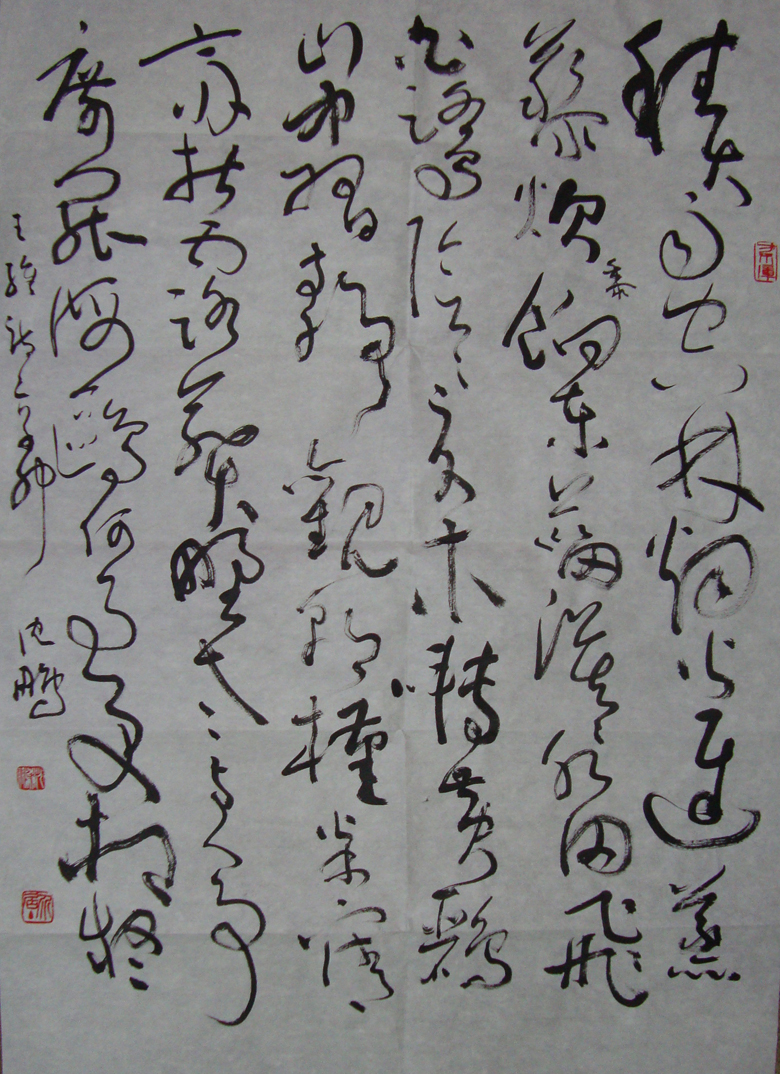 積雨空林烟火遲蒸
藜炊黍餉東菑漠漠水田飛
白鷺陰陰夏木囀黃鸝
山中習靜觀朝槿松下清
齋折露葵野老與人爭
席罷海鷗何事更相疑
王維詩
沈鵬